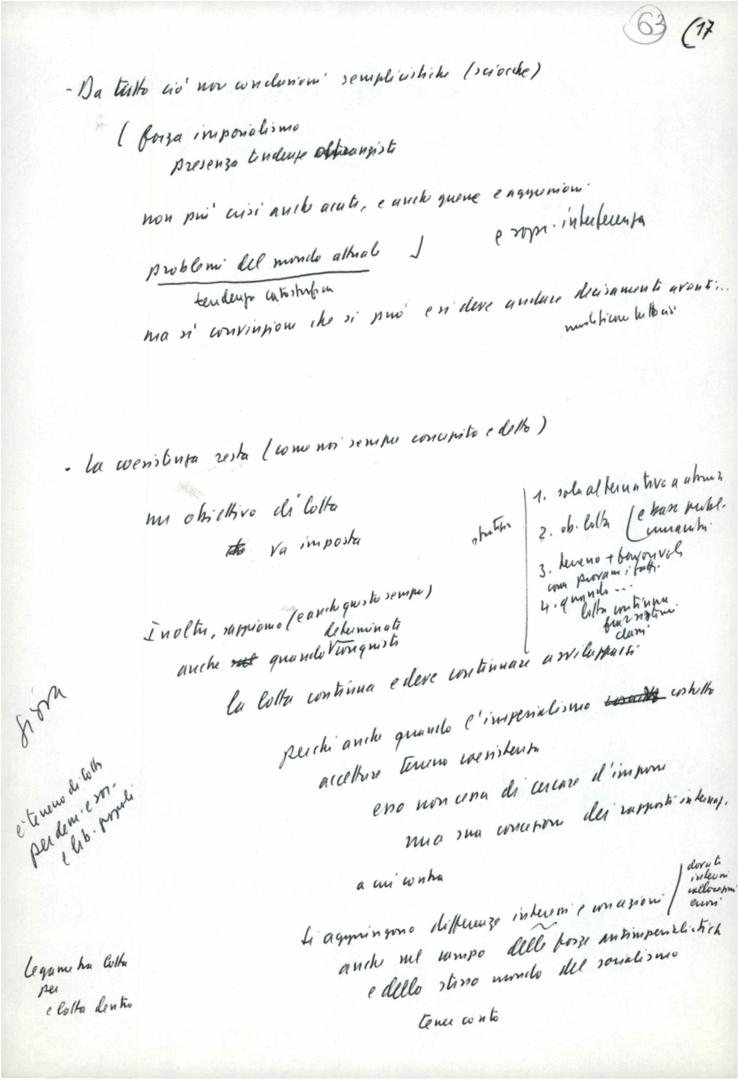 63 (17
- Da tutto ciò non conclusioni semplicistiche (sciocche)
( forza imperialismo
presenza tendenze oltranziste
non più crisi anche acute, e anche guerre e aggressioni
e sopr. interferenza
problemi del mondo attuale
tendenze catastrofiche
ma sì convinzione che si può e si deve andare decisamente avanti...
- La coesistenza resta (come noi sempre concepito e detto)
un obiettivo di lotta
va imposta
1. sola alternativa a
2. ob. lotta (e base
umanità.
3. terreno + favorevole
come provano i fatti
4. quando ...
lotta continua
classi
Inoltre, sappiamo (e anche questo sempre)
determinate
anche quando conquiste
la lotta continua e deve continuare a svilupparsi
perché anche quando l'imperialismo costretto
accettare terreno coesistenza
esso non cessa di cercare d'imporre
una sua concezione dei rapporti internaz.
a cui contra
Si aggiungono differenze interessi e concezioni
dovute
interessi
errori
anche nel campo delle forze antimperialistiche
e dello stesso mondo del socialismo
tener conto
è terreno di lotta
per dem. e soc.
e lib. popoli
Legame tra lotta
per
e lotta dentro